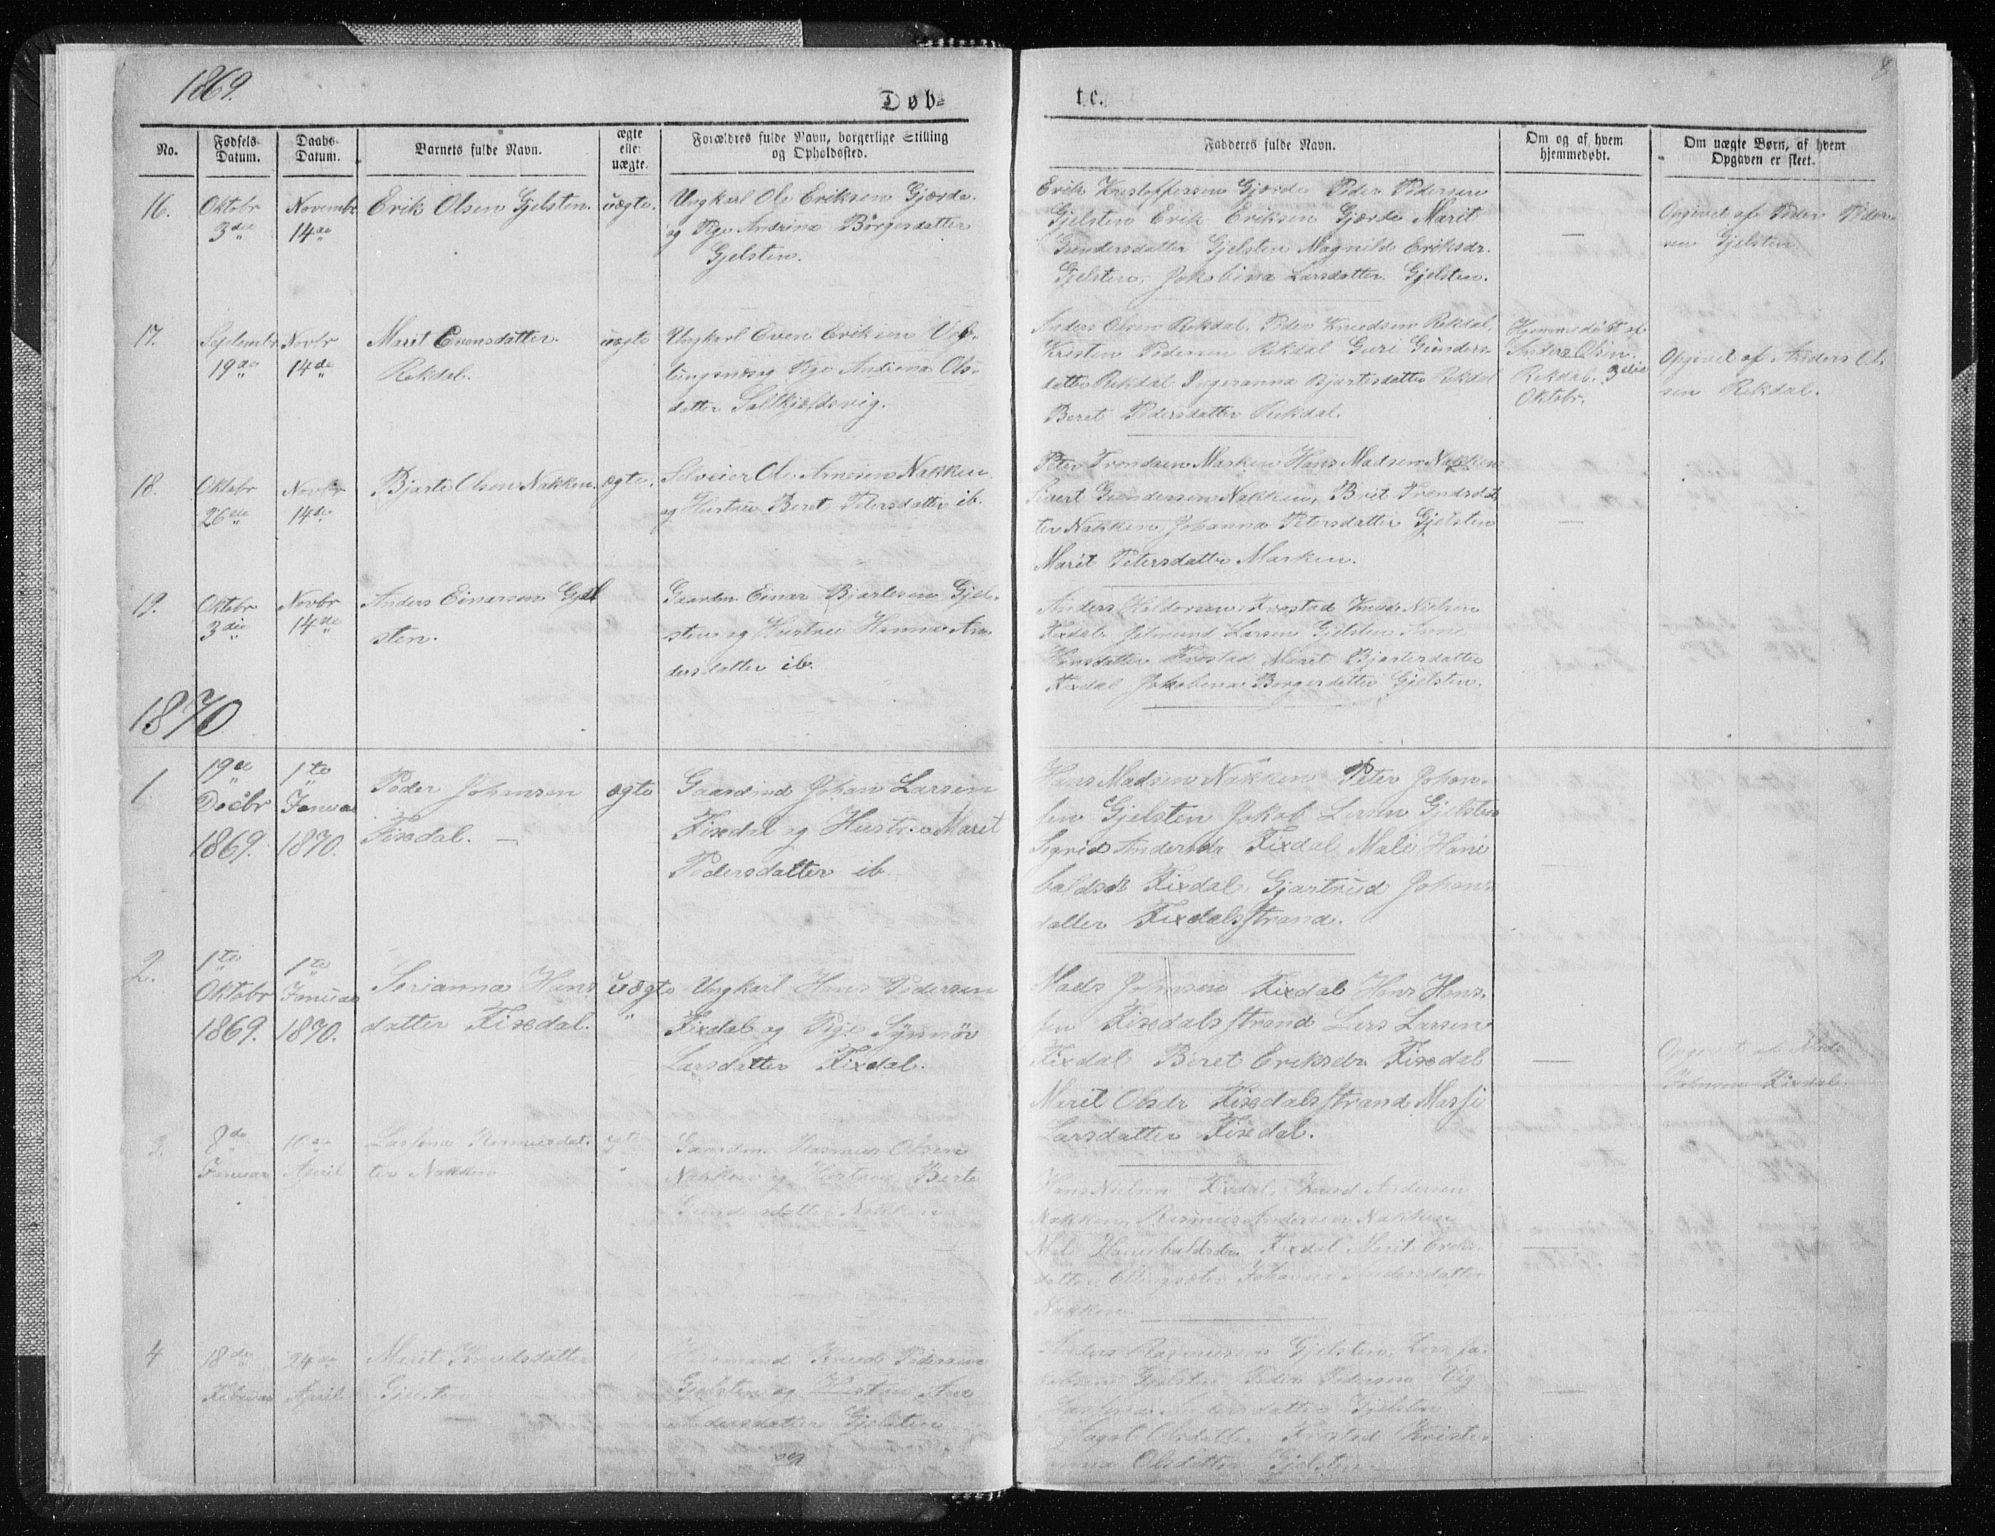 1869.
8
Døb-
te.
No.
Fødsels-
Datum.
Daabs-
Datum.
Barnets fulde Navn.
ægte
elle:
uægte.
Forældres fulde Navn, borgerlige Stilling
og Opholdssted.
Fadderes fulde Navn.
Om og af hvem
hjemmedøbt.
Om uægte Børn, af hvem
Opgaven er skeet.
16.
Oktobr
3die
Novembr
14de
Erik Olsen Gjelsten.
uægte.
Ungkarl Ole Eriksen Gjærde.
og Pige Andrina Børgesdatter
Gjelsten.
Erik Kristoffersen Gjærde Peder Pedersen
Gjelsten Erik Eriksen Gjærde Marit
Gundersdatter Gjelsten Magnild Eriksdr.
Gjelsten, Jakobina Larsdatter Gjelsten.
—
Opgivet af Peder Peder-
sen Gjelsten.
17.
Septembr
19de
Novbr
14de
Marit Evensdatter
Rekdal.
uægte
Ungkarl Even Eriksen
Pige Andrina Ols-
datter Saltkjelsvig.
Anders Olsen Rekdal, Peder Knudsen Rekdal,
Kristen Pedersen Rekdal Guri Gunders-
datter Rekdal Ingeranna Bjartesdatter Rekdal
Beret Pedersdatter Rekdal.
Hjemmedøbt af
Anders Olsen
Rekdal. 3die
Oktobr.
Opgivet af Anders Ol-
sen Rekdal.
18.
Oktobr
26de
Novbr
14de
Bjarte Olsen Nakken.
ægte.
Selveier Ole Arnesen Nakken
og Hustru Beret Petersdatter ib.
Peter Trondsen Marken Hans Madsen Nakken
Sivert Gundersen Nakken, Brit Trondsdat
ter Nakken, Johanna Petersdatter Gjelsten
Marit Petersdatter Marken.
—
19.
Oktobr
3die
Novbr
14de
Anders Einarsen Gjel
sten.
Gaardm. Einar Bjartesen Gjel-
sten og Hustru Hanna An-
dersdatter ib.
Anders Haldorsen Frostad Knud Nielsen
Fixdal Jetmund Larsen Gjelsten Anne
Hansdatter Frostad Marit Bjartesdatter
Fixdal Jakobina Børgesdatter Gjelsten.
1870
1
19de
Decbr
1869.
1te
Januar
1870.
Peder Johansen
Fixdal. —
ægte
Gaardmd Johan Larsen
Fixdal og Hustru Marit
Pedersdatter ib.
Hans Madsen Nakken Peter Johan-
sen Gjelsten Jakob Larsen Gjelsten
Sigrid Andersdr Fixdal Mali Hane
baldsdt Fixdal, Gjartrud Johans
datter Fixdalsstrand.
—
2.
1te
Oktobr
1869.
1te
Januar
1870.
Serianna Hans
datter Fixdal.
uægte
"
Ungkarl Hans Pedersen
Fixdal og Pige Synnøv
Larsdatter Fixdal.
Mads Johnsen Fixdal Hans Hans-
sen Fixdalsstrand Lars Larsen
Fixdal Beret Eriksdr Fixdal
Marit Olsdr Fixdalsstrand Massi
Larsdatter Fixdal.
—
Opgivet af Mads
Johnsen Fixdal.
3.
Januar
10de
April
Rasmusdat-
ter Nakken
ægte
"
Gaardm. Rasmus Olsen
Nakken og Hustru Berte
Gundersdatter Nakken
Hans Nielsen Fixdal, Knud Andersen
Nakken, Rasmus Andersen Nakken
Mali Hanebaldsdr. Fixdal Marit Eriks-
datter Johanna Andersdatter
Nakken.
—
4
18de
Februar
24de
April
Marit Knudsdatter
Gjelsten
Knud Pedersen
Gjelsten og Hustru Ane
Andersdatter Gjelsten
Anders Rasmusen Gjelsten, Lars Ja-
kobsen Gjelsten Peder Pedersen Vig
Gjelsten
Olsdatter Frostad Kristi-
anna Olsdatter Gjelsten
—